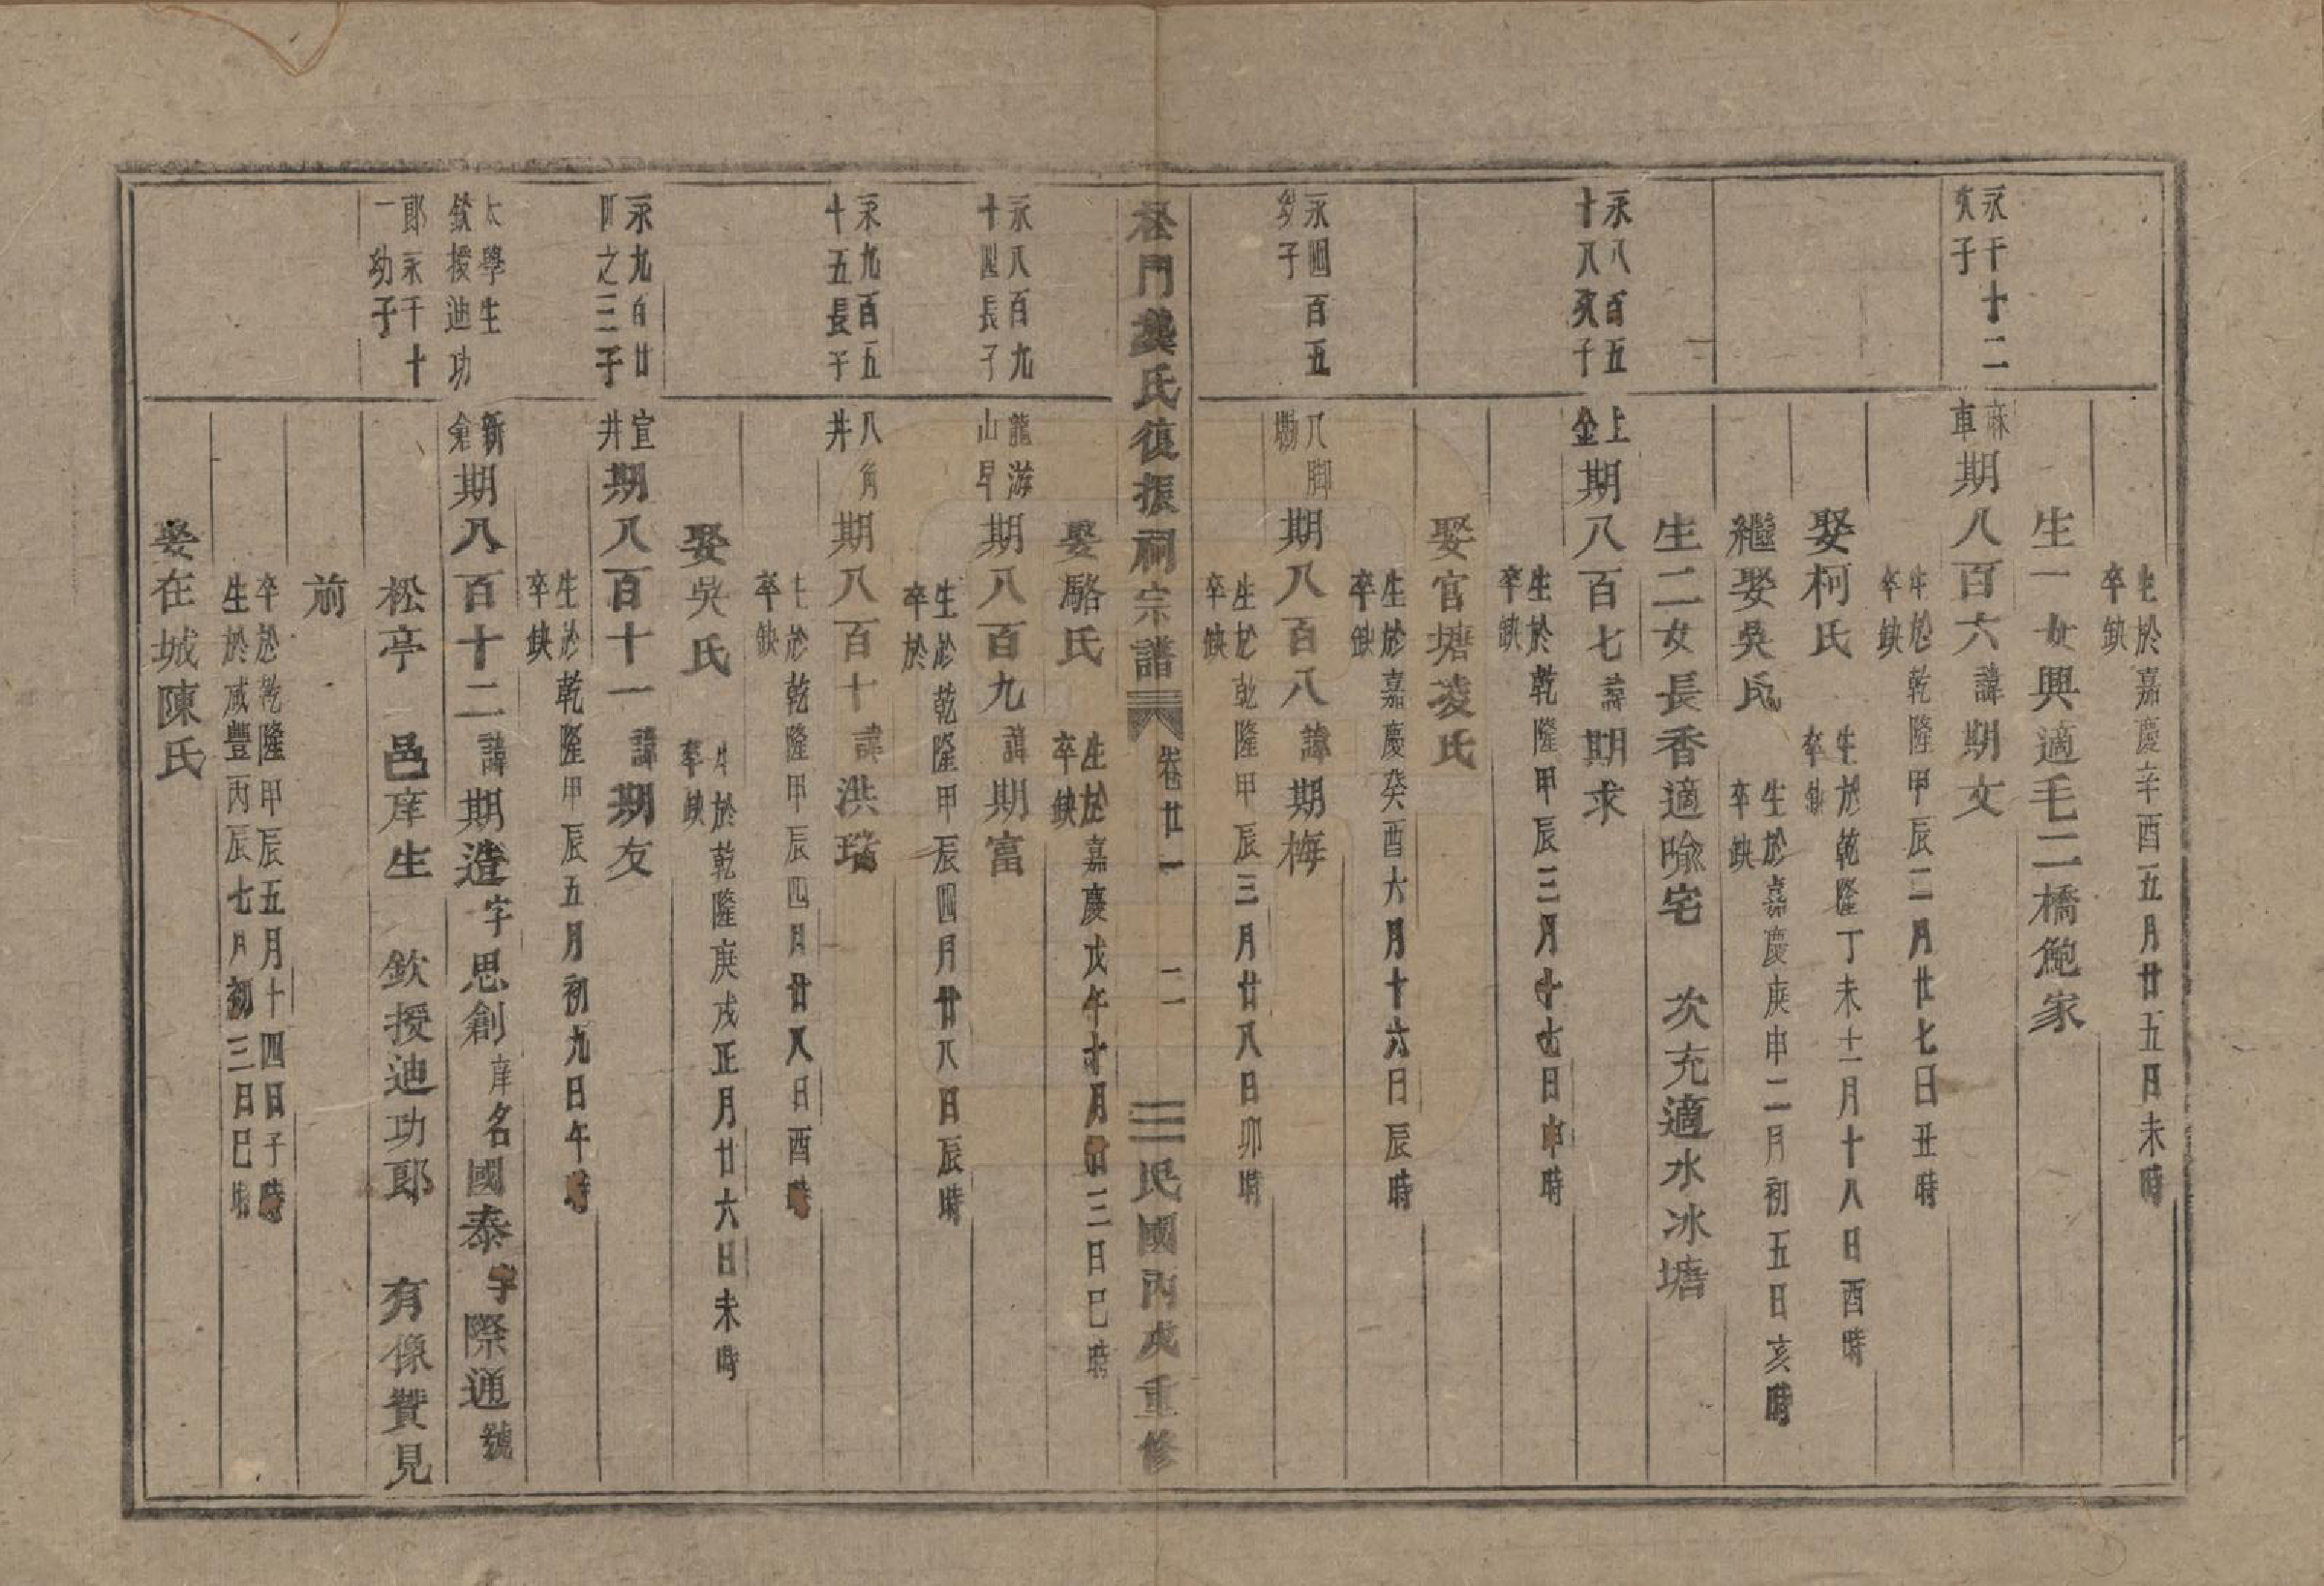 生於嘉慶辛酉五月廿五日未時
卒缺
生一女興適毛二橋鮑家
永千十二
次子
麻車
期八百六諱期文
生於乾隆甲辰二月廿七日丑時
卒缺
娶柯氏
生於乾隆丁未十一月十八日酉時
卒缺
繼娶吳氏
生於嘉慶庚申二月初五日亥時
卒缺
生二女長香適隃宅 次充適水冰塘
永八百五
十八次子
上金
期八百七諱期求
生於乾隆甲辰三月十七日申時
卒缺
娶官塘凌氏
生於嘉慶癸酉六月十六日辰時
卒缺
永四百五
幼子
八脚塘
期八百八諱期梅
生於乾隆甲辰三月廿八日卯時
卒缺
龔氏復振祠宗譜 卷廿一 二 民國丙戌重修
娶駱氏
生於嘉慶戊午十月廿三日巳時
卒缺
永八百九
十四長子
龍游
山早
期八百九諱期富
生於乾隆甲辰四月廿八日辰時
卒於
永九百五
十五長子
八角
井
期八百十諱洪璐
生於乾隆甲辰四月廿八日酉時
卒缺
娶吳氏
生於乾隆庚戌正月廿六日未時
卒缺
永九百廿
四之三子
宣井
期八百十一諱期友
生於乾隆甲辰五月初九日午時
卒缺
太學生
欽授迪功
郎永千十
一幼子
新倉
期八百十二諱期造字思創庠名國泰字際通號
松亭 邑庠生 欽授迪功郎 有像贊見
前
卒於乾隆甲辰五月十四日子時
生於咸豐丙辰七月初三日巳時
娶在城陳氏